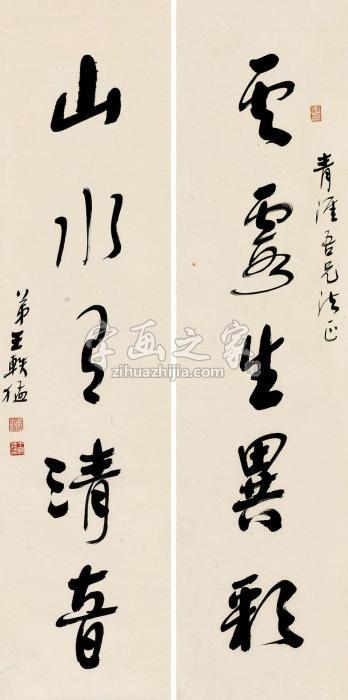 青涯吾兄法正
雲霞生異彩
山水有清音
弟王軼猛
字画之家
zihuazhijia.com